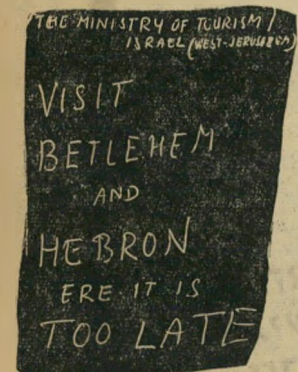 THE MINISTRY OF TOURISM /
ISRAEL (WEST-JERUSALEM)
VISIT
BETLEHEM
AND
HEBRON
ERE IT IS
TOO LATE